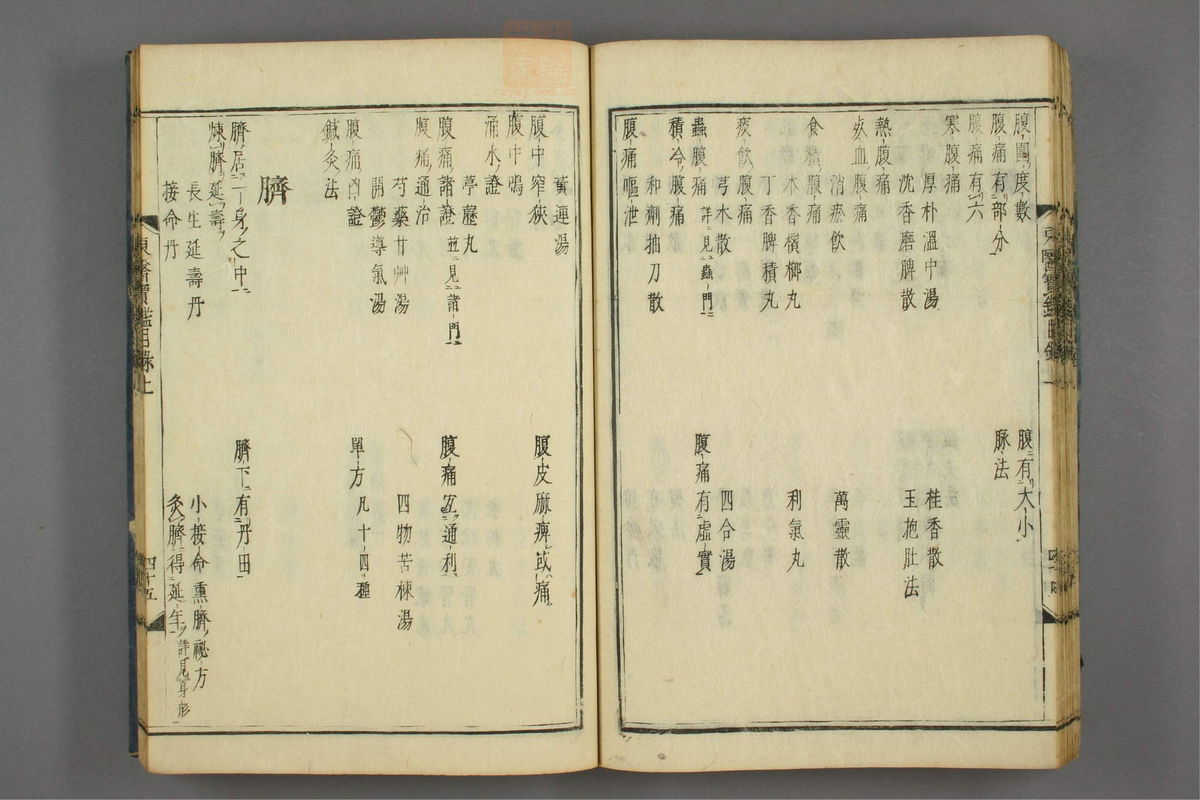 腹圍度數
腹有大小
腹痛有部分
脉法
腹痛有六
寒腹痛
厚朴溫中湯
桂香散
沈香磨脾散
玉抱肚法
熱腹痛
瘀血腹痛
消瘀飮
萬靈散
食積腹痛
木香檳榔丸
利氣丸
丁香脾積丸
痰飮腹痛
芎朮散
四合湯
蟲腹痛 詳見蟲門
腹痛有虛實
積冷腹痛
和劑抽刀散
腹痛嘔泄
東醫寶鑑目錄上
黃連湯
腹中窄狹
腹皮麻痺或痛
腹中鳴
涌水證
葶藶丸
腹痛諸證 並見諸門
腹痛宜通利
腹痛通治
芍藥甘艸湯
四物苦楝湯
開鬱導氣湯
腹痛凶證
單方 凡十四種
鍼灸法
臍
臍居一身之中
臍下有丹田
煉臍延壽
長生延壽丹
小接命熏臍祕方
接命丹
灸臍得延年 詳見身形
東醫寶鑑目錄上
四十五